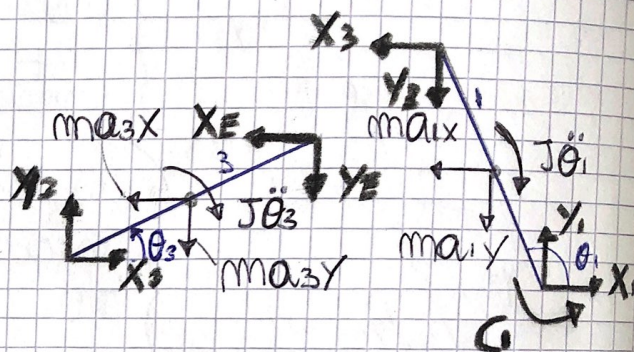 X3
Y3
1
ma1x
Jθ̈1
ma1y
Y1
θ1
X1
C1
ma3x
XE
3
YE
Jθ̈3
θ3
X3
ma3y